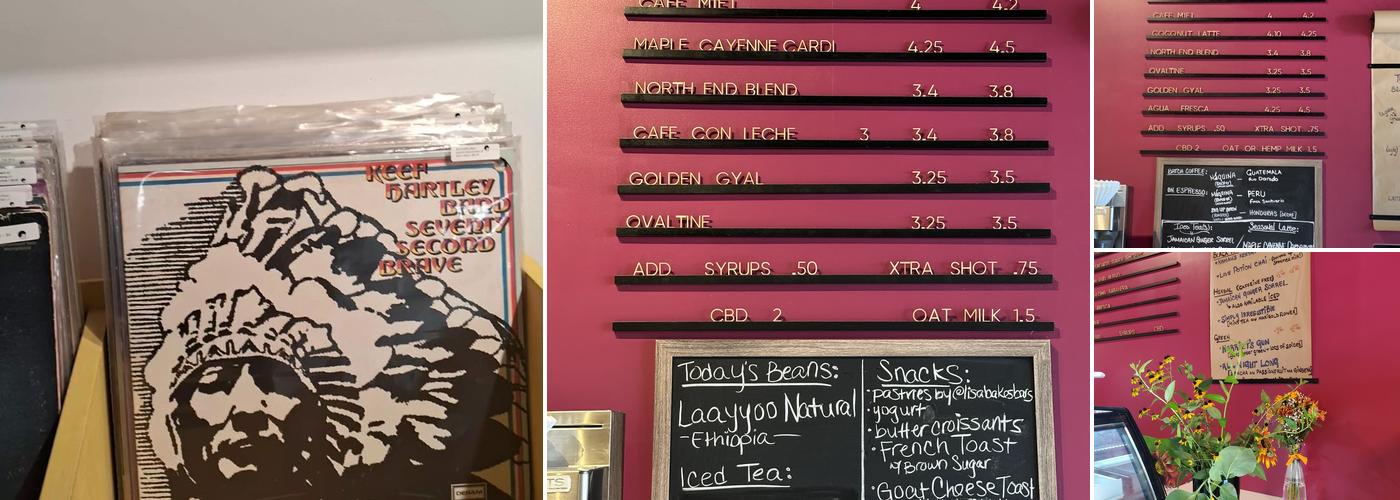 KEEF
HARTLEY
BAND
SEVENTY
SECOND
BRAVE
DERAM
CAFE MIEL 4 4.2
MAPLE CAYENNE CARDI 4.25 4.5
NORTH END BLEND 3.4 3.8
CAFE CON LECHE 3 3.4 3.8
GOLDEN GYAL 3.25 3.5
OVALTINE 3.25 3.5
ADD SYRUPS .50 XTRA SHOT .75
CBD 2 OAT MILK 1.5
Today's Beans:
Laayyoo Natural
-Ethiopia-
Iced Tea:
Snacks:
·pastries by @lisabakosbars
·yogurt
·butter croissants
·French Toast
w/ Brown Sugar
·Goat Cheese Toast
CAFE MIEL 4 4.2
COCONUT LATTE 4.10 4.25
NORTH END BLEND 3.4 3.8
OVALTINE 3.25 3.5
GOLDEN GYAL 3.25 3.5
AGUA FRESCA 4.25 4.5
ADD SYRUPS .50 XTRA SHOT .75
CBD 2 OAT OR HEMP MILK 1.5
BATCH COFFEE: MÁQUINA GUATEMALA
ON ESPRESSO: MÁQUINA — PERU
— HONDURAS
Iced Tea(s): Seasonal Latte:
JAMAICAN GINGER SORREL
SYRUPS CBD
· LOVE POTION CHAI
HERBAL (CAFFEINE FREE)
· JAMAICAN GINGER SORREL
ALSO AVAILABLE ICED
· SIMPLY IRRESISTIBLE
GREEN
· HARRIET'S GUN
· ALL NIGHT LONG